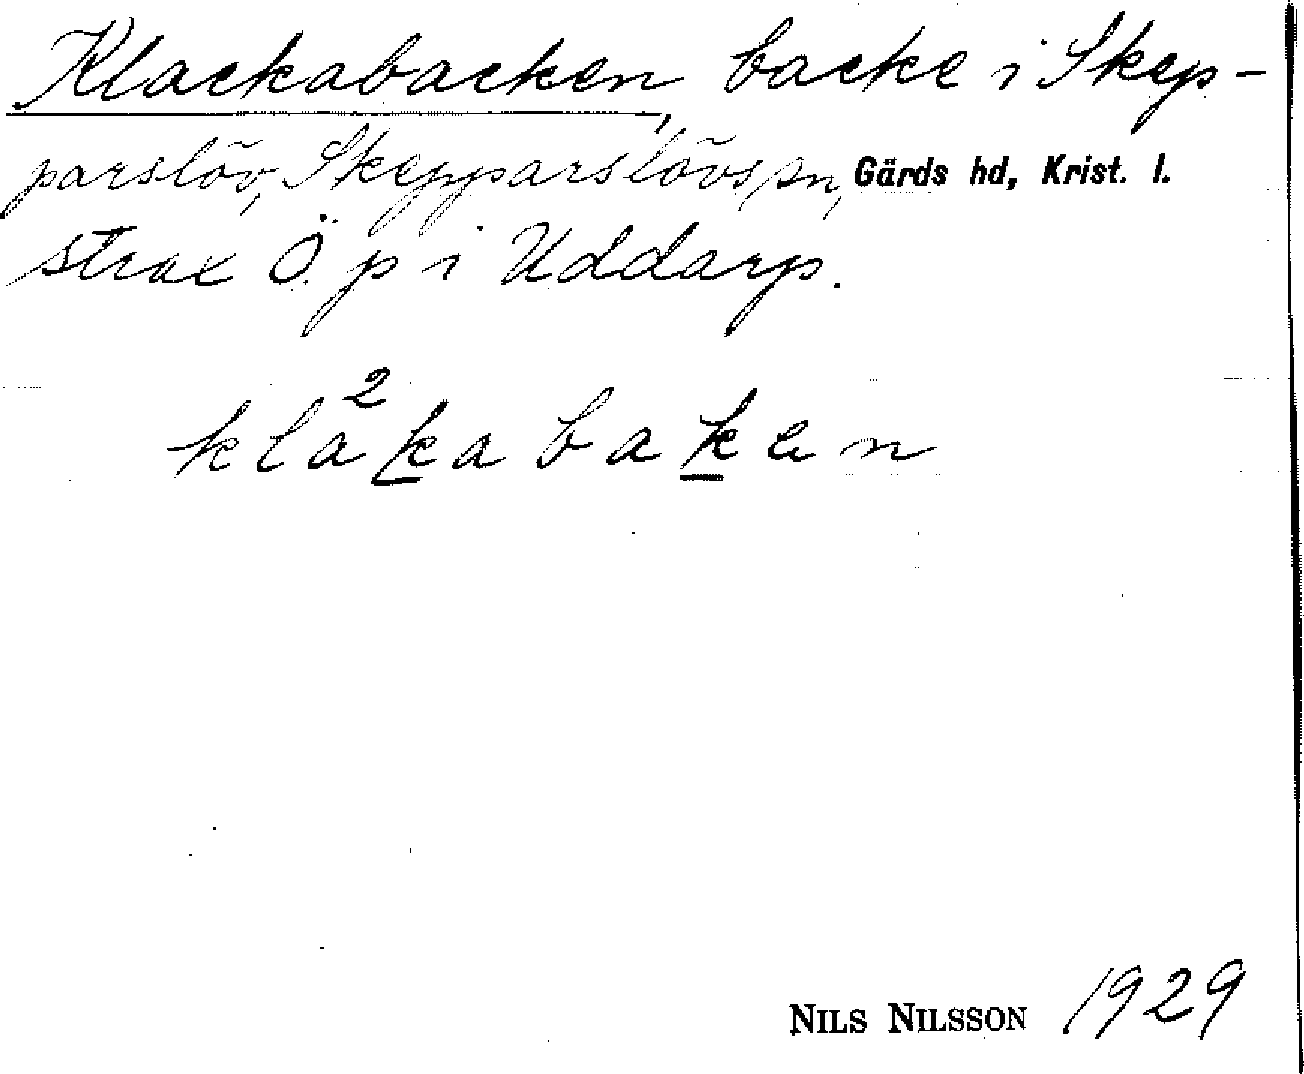 Klackabacken, backe i Skep-
parslöv, Skepparslövs sn, Gärds hd, Krist. l.
strax Ö. p i Uddarp.
kla²kabaken
NILS NILSSON 1929